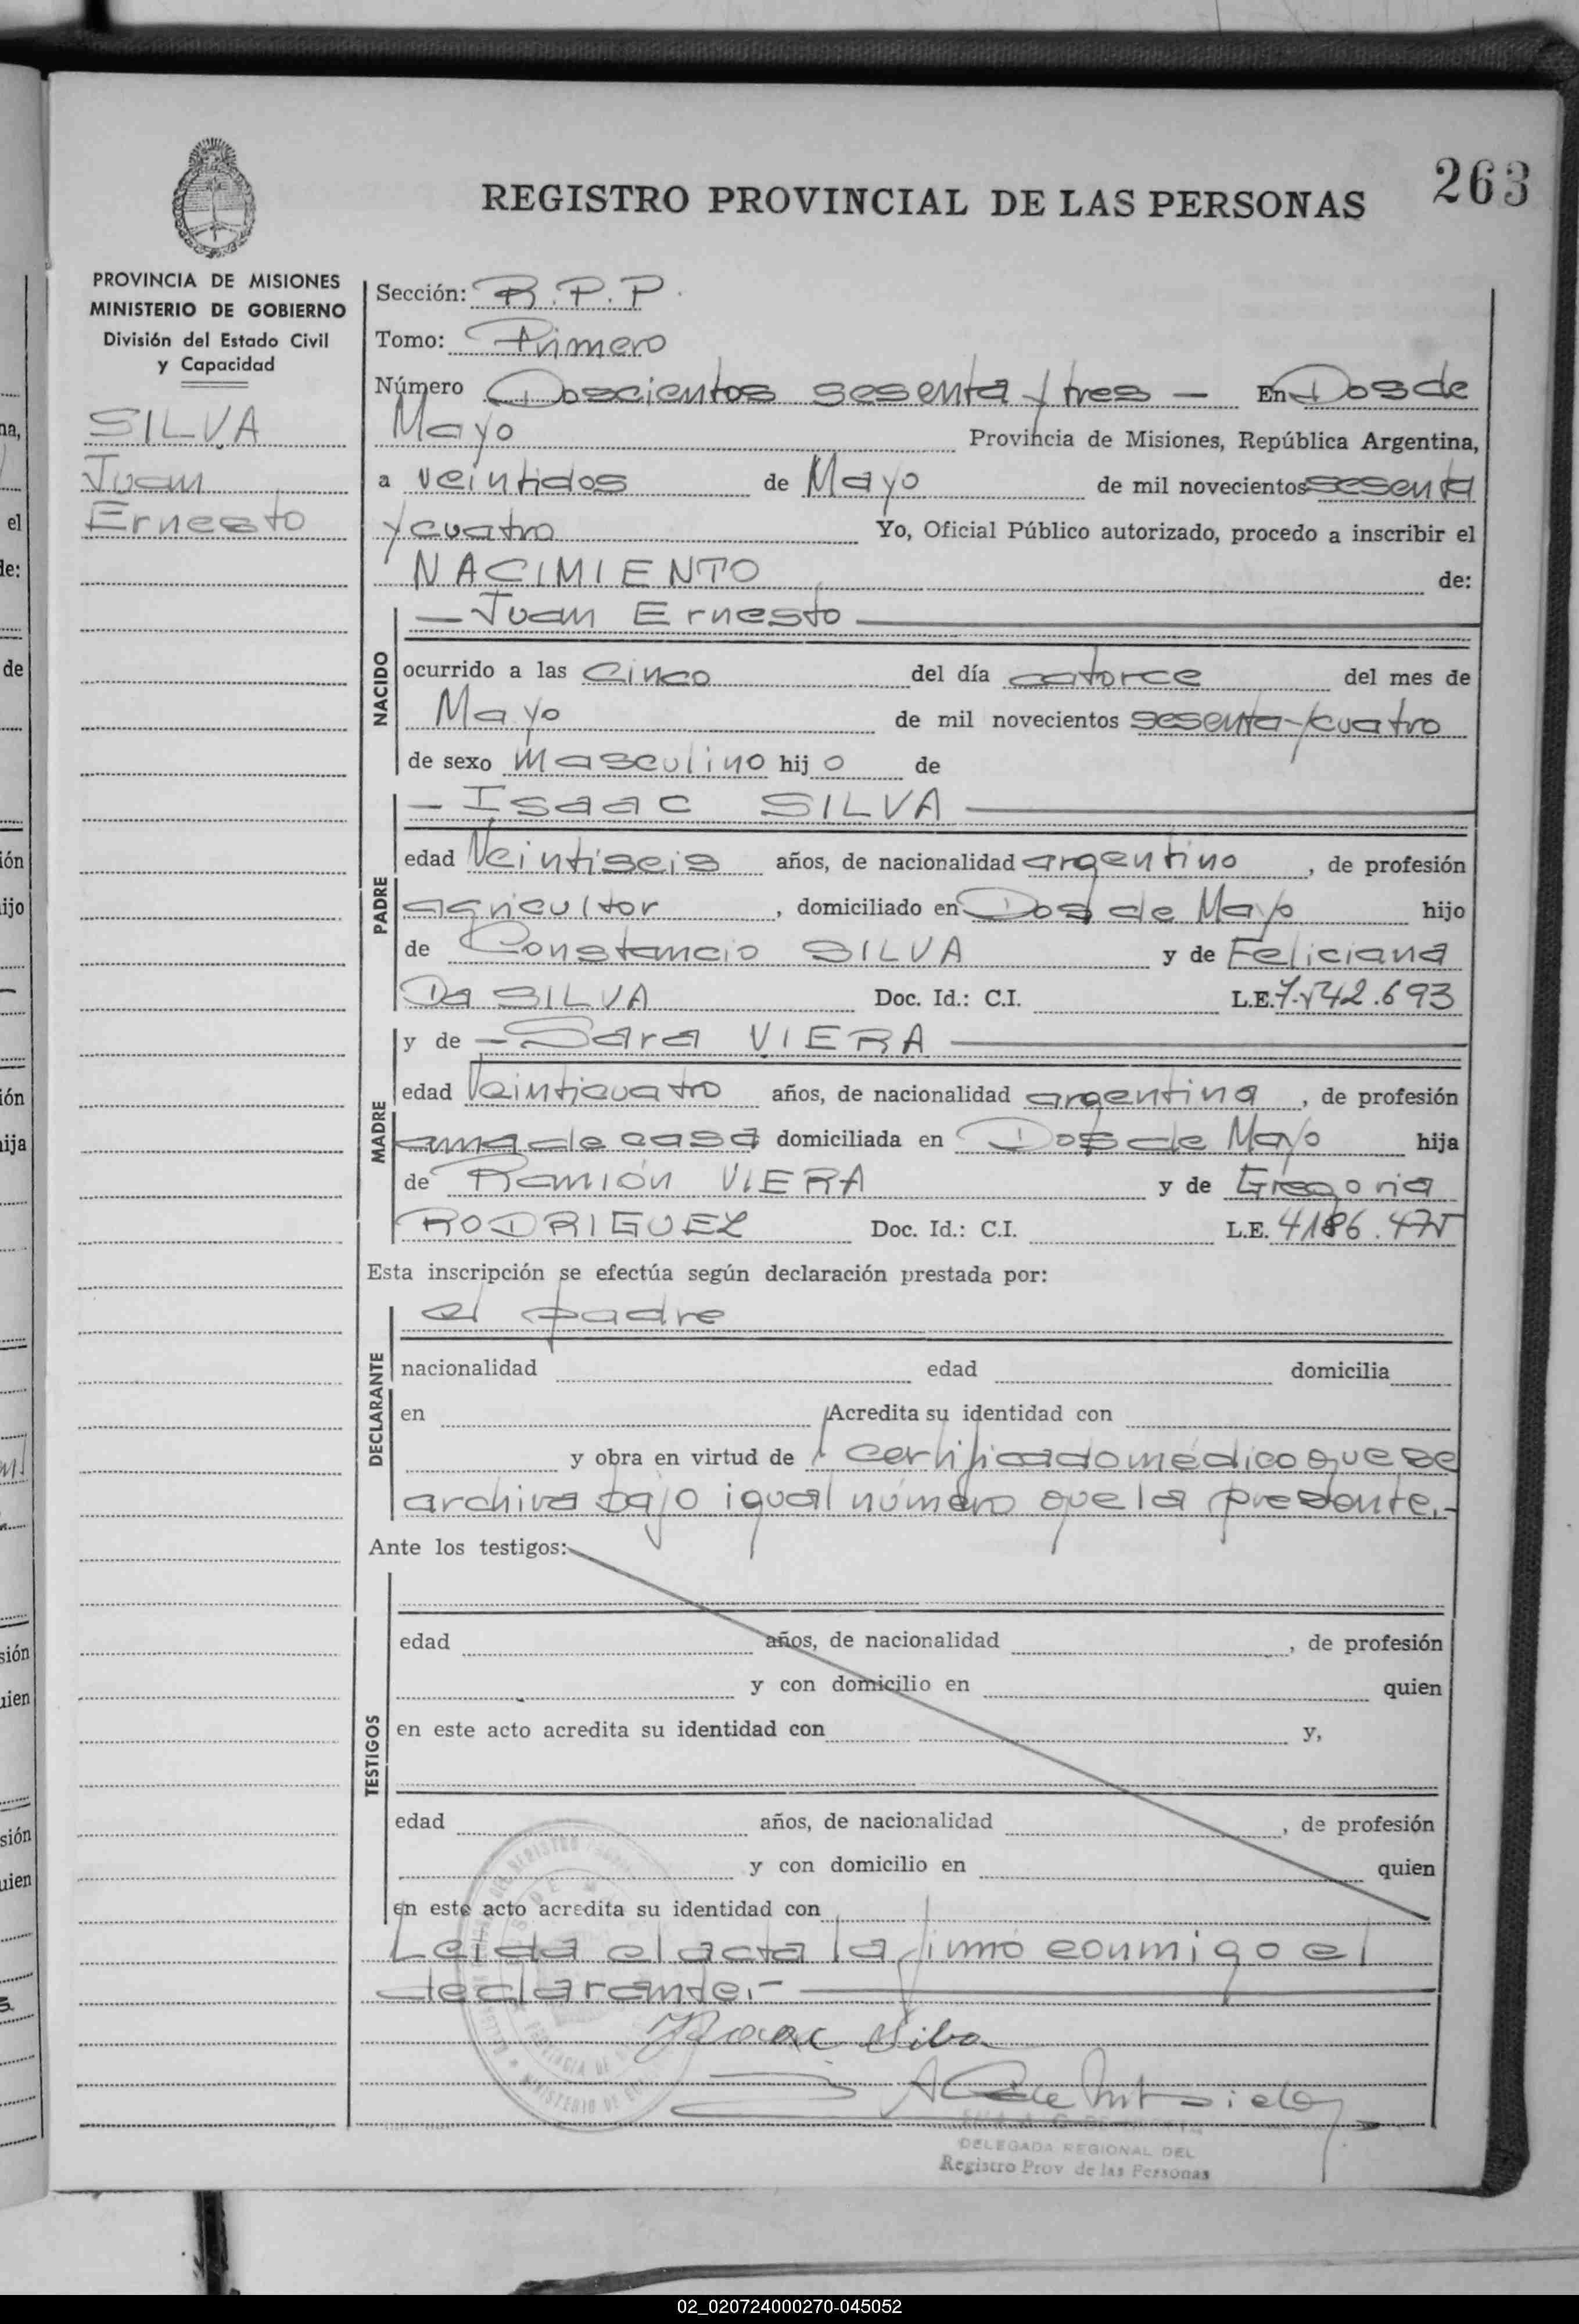 263
REGISTRO PROVINCIAL DE LAS PERSONAS
PROVINCIA DE MISIONES
MINISTERIO DE GOBIERNO
División del Estado Civil
y Capacidad
SILVA
Juan
Ernesto
Sección: R.P.P.
Tomo: Primero
Número Doscientos sesenta y tres — En Dos de
Mayo Provincia de Misiones, República Argentina,
a veintidos de Mayo de mil novecientos sesenta
y cuatro Yo, Oficial Público autorizado, procedo a inscribir el
NACIMIENTO de:
— Juan Ernesto —
NACIDO
ocurrido a las cinco del día catorce del mes de
Mayo de mil novecientos sesenta y cuatro
de sexo masculino hijo de
— Isaac SILVA —
PADRE
edad Veintiseis años, de nacionalidad argentino, de profesión
agricultor, domiciliado en Dos de Mayo hijo
de Constancio SILVA y de Feliciana
Da SILVA Doc. Id.: C.I. L.E. 7.542.693
y de — Sara VIERA —
MADRE
edad Veinticuatro años, de nacionalidad argentina, de profesión
ama de casa domiciliada en Dos de Mayo hija
de Ramión VIERA y de Gregoria
RODRIGUEZ Doc. Id.: C.I. L.E. 4186.475
Esta inscripción se efectúa según declaración prestada por:
el padre
DECLARANTE
nacionalidad edad domicilia
en Acredita su identidad con
y obra en virtud de certificado médico que se
archiva bajo igual número que la presente.-
Ante los testigos:
TESTIGOS
edad años, de nacionalidad , de profesión
y con domicilio en quien
en este acto acredita su identidad con y,
edad años, de nacionalidad , de profesión
y con domicilio en quien
en este acto acredita su identidad con
Leida el acta la firmó conmigo el
declarante.-
Isaac Silva
DELEGADA REGIONAL DEL
Registro Prov de las Personas
02_020724000270-045052